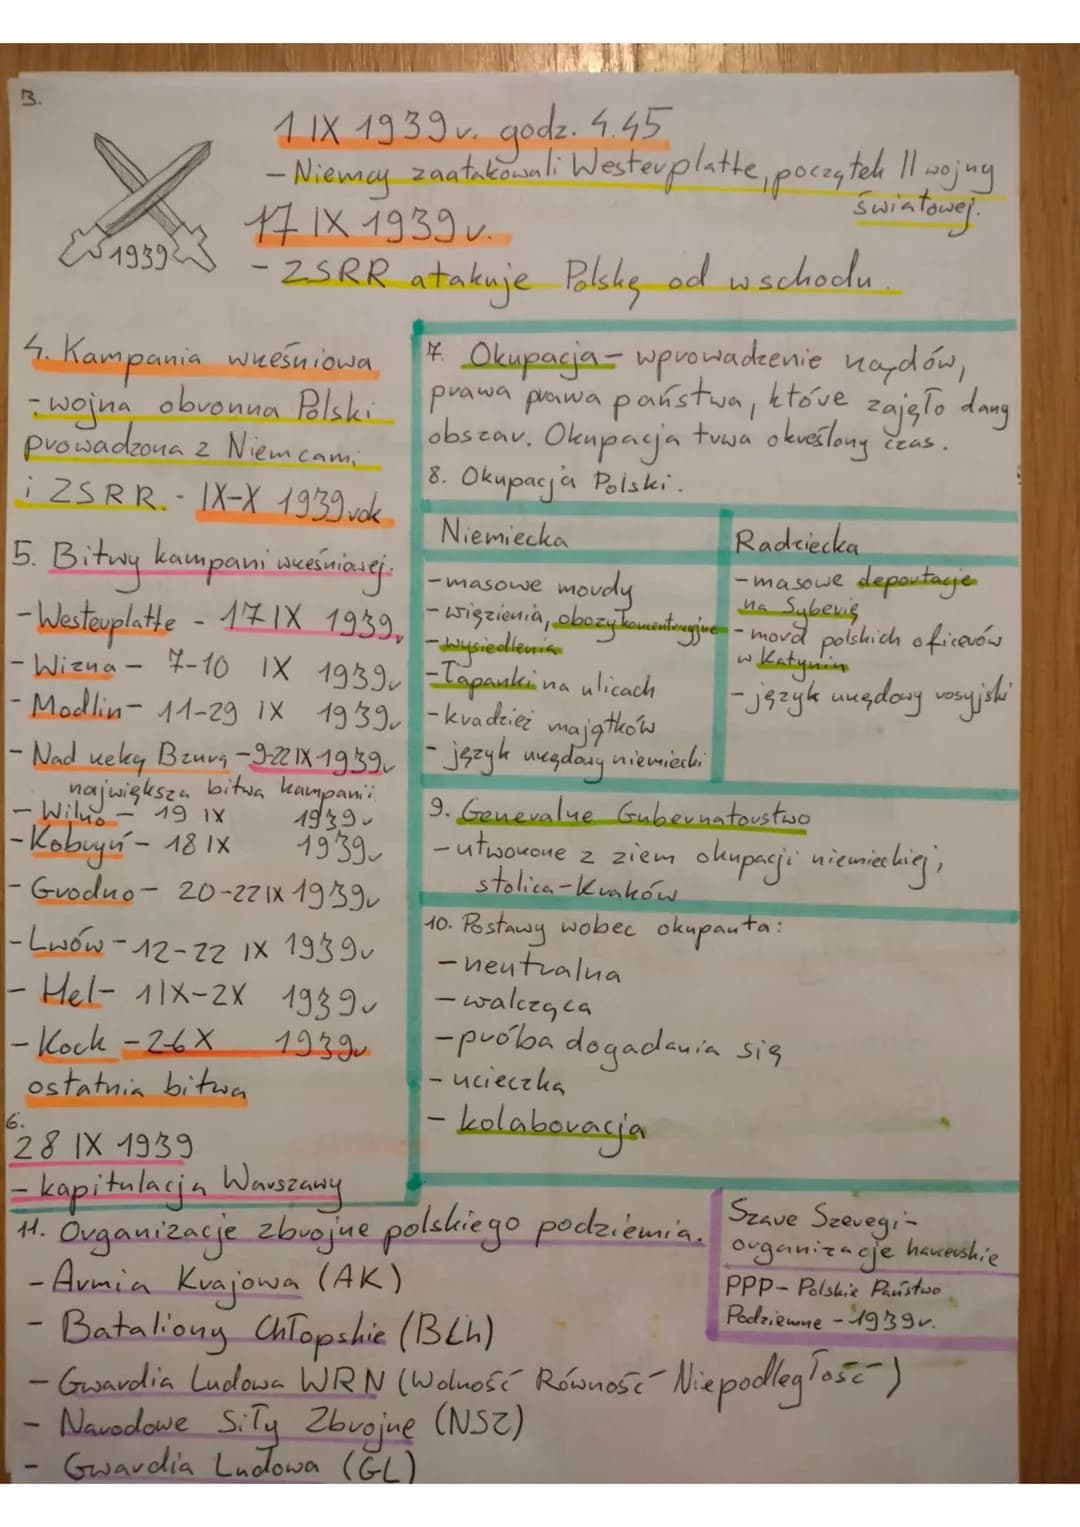 3.
1 IX 1939 r. godz. 4.45
- Niemcy zaatakowali Westerplatte, początek II wojny
światowej.
17 IX 1939 r.
- ZSRR atakuje Polskę od wschodu.
1939
4. Kampania wrześniowa
- wojna obronna Polski
prowadzona z Niemcami
i ZSRR. - IX-X 1939 rok
5. Bitwy kampani wrześniowej.
- Westerplatte - 17 IX 1939r
- Wizna - 7-10 IX 1939r
- Modlin - 11-29 IX 1939r
- Nad rzeką Bzurą - 9-22 IX 1939r
największa bitwa kampanii
- Wilno - 19 IX 1939r
- Kobryń - 18 IX 1939r
- Grodno - 20-22 IX 1939r
- Lwów - 12-22 IX 1939r
- Hel - 1 IX-2X 1939r
- Kock - 2-6 X 1939r
ostatnia bitwa
6.
28 IX 1939
- kapitulacja Warszawy
7. Okupacja - wprowadzenie rządów,
prawa prawa państwa, które zajęło dany
obszar. Okupacja trwa określony czas.
8. Okupacja Polski.
Niemiecka
- masowe mordy
- więzienia, obozy koncentracyjne
- wysiedlenia
- Łapanki na ulicach
- kradzież majątków
- język urzędowy niemiecki
Radziecka
- masowe deportacje
na Syberię
- mord polskich oficerów
w Katyniu
- język urzędowy rosyjski
9. Generalne Gubernatorstwo
- utworzone z ziem okupacji niemieckiej,
stolica - Kraków
10. Postawy wobec okupanta:
- neutralna
- walcząca
- próba dogadania się
- ucieczka
- kolaboracja
11. Organizacje zbrojne polskiego podziemia.
- Armia Krajowa (AK)
- Bataliony Chłopskie (BCh)
- Gwardia Ludowa WRN (Wolność Równość Niepodległość)
- Narodowe Siły Zbrojne (NSZ)
- Gwardia Ludowa (GL)
Szare Szeregi -
organizacje harcerskie
PPP - Polskie Państwo
Podziemne - 1939r.